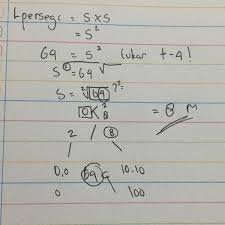 Lpersegi = S x S
= S²
64 = S² (ukar t-4!
S² = 64 √
S = ²√64 ?²
0K 8²
= 8 M
2 / 8
0,0 64 10.10
0 100